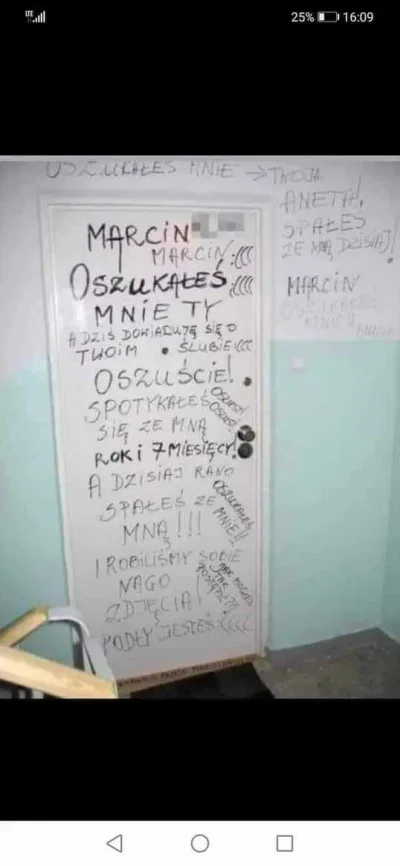 25% 16:09
OSZUKAŁEŚ MNIE → TWOJA
ANETA!
SPAŁEŚ
ZE MNĄ DZISIAJ!
MARCIN
MARCIN
MARCIN :(((
OSZUKAŁEŚ :((((
MNIE TY
A DZIŚ DOWIADUJĘ SIĘ O
TWOIM ŚLUBIE :(((
OSZUŚCIE!
SPOTYKAŁEŚ
SIĘ ZE MNĄ
ROK I 7 MIESIĘCY!
A DZISIAJ RANO
SPAŁEŚ ZE
MNĄ!!!
OSZUKAŁEŚ
MNIE!!
I ROBILIŚMY SOBIE
NAGO
ZDJĘCIA!
JAK MOGŁEŚ
TAK
PODŁY JESTEŚ :((((